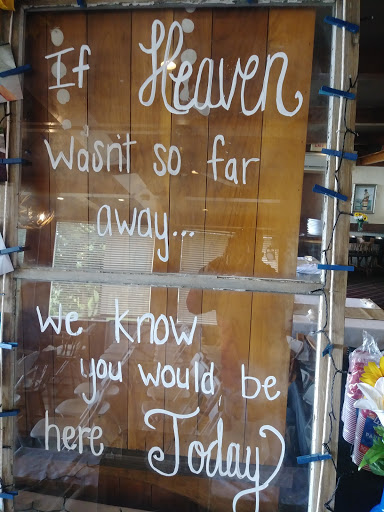 If Heaven
wasn't so far
away...
we know
you would be
here Today